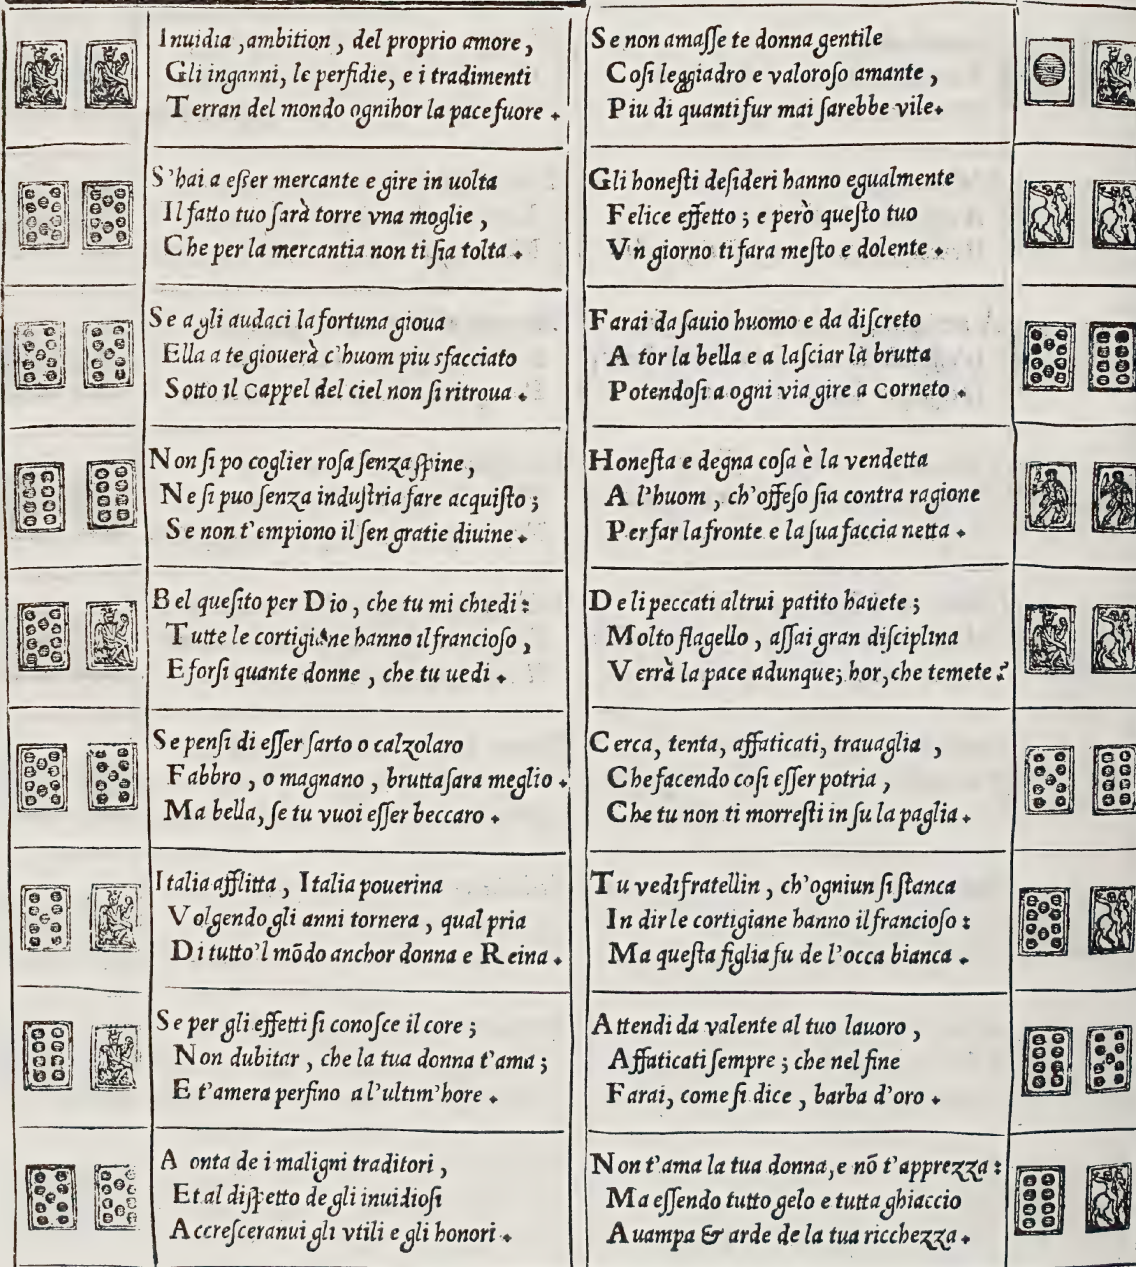 Inuidia, ambition, del proprio amore,
Gli inganni, le perfidie, e i tradimenti
Terran del mondo ognihor la pace fuore.
S'hai a eſſer mercante e gire in uolta
Il fatto tuo ſarà torre vna moglie,
Che per la mercantia non ti ſia tolta.
Se a gli audaci la fortuna gioua
Ella a te giouerà c'huom piu sfacciato
Sotto il Cappel del ciel non ſi ritroua.
Non ſi po coglier roſa ſenza ſpine,
Ne ſi puo ſenza induſtria fare acquiſto;
Se non t'empiono il ſen gratie diuine.
Bel queſito per Dio, che tu mi chiedi:
Tutte le cortigiane hanno il francioſo,
E forſi quante donne, che tu uedi.
Se penſi di eſſer ſarto o calzolaro
Fabbro, o magnano, brutta ſara meglio.
Ma bella, ſe tu vuoi eſſer beccaro.
Italia afflitta, Italia pouerina
Volgendo gli anni tornera, qual pria
Di tutto'l mōdo anchor donna e Reina.
Se per gli effetti ſi conoſce il core;
Non dubitar, che la tua donna t'ama;
E t'amera perfino a l'ultim'hore.
A onta de i maligni traditori,
Et al diſpetto de gli inuidioſi
Accreſceranui gli vtili e gli honori.
Se non amaſſe te donna gentile
Coſi leggiadro e valoroſo amante,
Piu di quanti fur mai ſarebbe vile.
Gli honeſti deſideri hanno egualmente
Felice effetto; e però queſto tuo
Vn giorno ti fara meſto e dolente.
Farai da ſauio huomo e da diſcreto
A tor la bella e a laſciar la brutta
Potendoſi a ogni via gire a Corneto.
Honeſta e degna coſa è la vendetta
A l'huom, ch'offeſo ſia contra ragione
Per far la fronte e la ſua faccia netta.
De li peccati altrui patito hauete;
Molto flagello, aſſai gran diſciplina
Verrà la pace adunque; hor, che temete?
Cerca, tenta, affaticati, trauaglia,
Che facendo coſi eſſer potria,
Che tu non ti morreſti in ſu la paglia.
Tu vedi fratellin, ch'ogniun ſi ſtanca
In dir le cortigiane hanno il francioſo:
Ma queſta figlia fu de l'occa bianca.
Attendi da valente al tuo lauoro,
Affaticati ſempre; che nel fine
Farai, come ſi dice, barba d'oro.
Non t'ama la tua donna, e nō t'apprezza:
Ma eſſendo tutto gelo e tutta ghiaccio
Auampa & arde de la tua ricchezza.